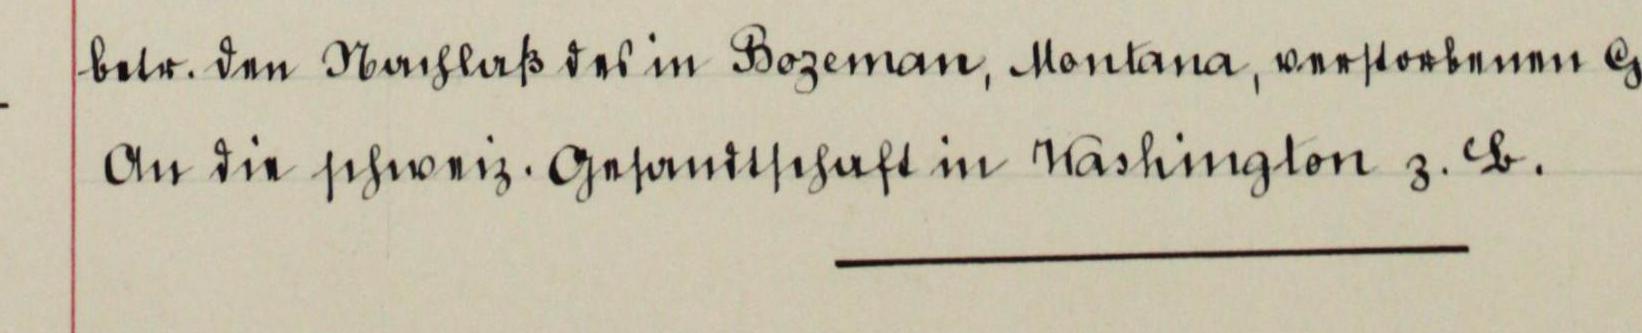 betr. den Nachlaß des in Bozeman, Montana, verstorbenen
An die schweiz. Gesandtschaft in Washington z. B.